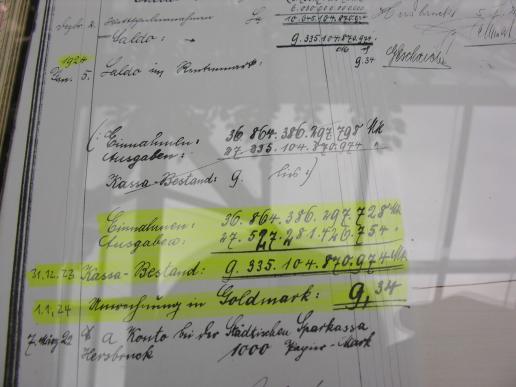 6.000.000.000.000
Septr. 2. 10.645.104.870.974
Saldo: 9.335.104.870.974
1924
Jan. 5. Saldo in Rentenmark: 9.34
(: Einnahmen: 36.864.386.297.798 Mk
Ausgaben: 27.235.104.870.974 "
Kassa-Bestand: 9. :)
Einnahmen: 36.864.386.297.728 Mk
Ausgaben: 27.527.281.426.754.
31.12.23 Kassa-Bestand: 9.335.104.870.974 Mk
1.1.24 Umrechnung in Goldmark: 9,34
7. März 22 a Konto bei der Städtischen Sparkassa,
Hersbruck 1000 Papier-Mark